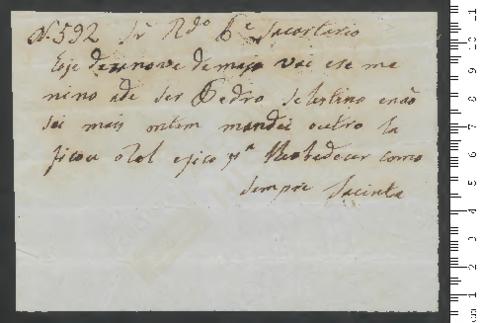 N. 592 Sr Rdo Pe Sacortario
Eoje desanove de majo vai ese me
nino ade ser Pedro Selestino enão
sei mais ontem mandei outro la
ficou otol efico pa obedecer como
sempre Jacinta
cm 1 2 3 4 5 6 7 8 9 10 11